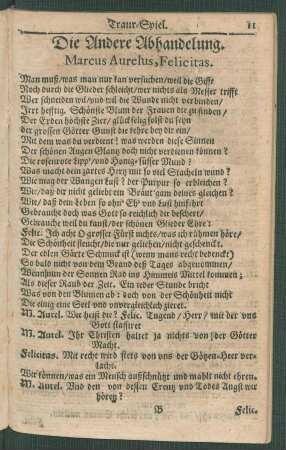 Traur-Spiel. 11
Die Andere Abhandelung.
Marcus Aurelus, Felicitas.
Man muß/was man nur kan versuchen/weil die Gifft
Noch durch die Glieder schleicht/wer nichts als Messer trifft
Wer schneiden wil/und wil die Wunde nicht verbinden/
Irrt hefftig. Schönste Blum der Frauen die zu finden/
Der Erden höchste Zier/ glückselig solst du seyn
der grossen Götter Gunst die kehre bey dir ein/
Mit dem was du verdient? was werden diese Sinnen
Der schönen Augen Glantz doch nicht verdienen können?
Die rosenrote Lipp/ und Honig-süsser Mund?
Was macht dein zartes Hertz mit so viel Stacheln wund?
Wie mag der Wangen Lust? der Purpur so erbleichen?
Wie/ daß dir nicht geliebt ein Bräutgam deines gleichen?
Wie/ daß dem Leben so ohn' Eh' und Lust hinfährt
Gebrauche doch was Gott so reichlich dir beschert/
Gebrauche weil du kanst/der schönen Glieder Ehre:
Felic. Ich acht O grosser Fürst nichts/was ich rühmen höre/
Die Schönheit fleucht/die nur geliehen/nicht geschenckt.
Der edlen Gärte Schmuck ist (wenn mans recht bedenckt)
So bald nicht von dem Brand deß Tages abgenommen/
Wenn schon der Sonnen Rad ins Himmels Mittel kommen;
Als dieser Raub der Zeit. Ein jeder Stunde bricht
Was von den Blumen ab: doch von der Schönheit nicht
Die einig eine Seel und unvergleichlich zieret.
M. Aurel. Wer heist die? Felic. Tugend/ Herr/ mit der uns
Gott staffiret
M. Aurel. Ihr Christen haltet ja nichts von der Götter
Macht.
Felicitas. Mit recht wird stets von uns der Götzen-Heer ver-
lacht.
Wir können/was ein Mensch außschnützt und mahlt nicht ehren.
M. Aurel. Und den von dessen Creutz und Todes Angst wir
hören?
B Felic.